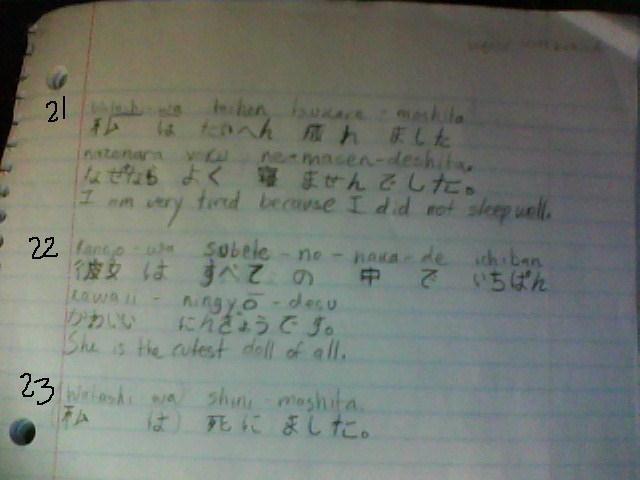 21 watashi-wa taihen tsukare-mashita
私 は たいへん 疲れ ました
nazenara yoku ne-masen-deshita.
なぜなら よく 寝 ませんでした。
I am very tired because I did not sleep well.
22 kanojo-wa subete-no-naka-de ichiban
彼女 は すべて の 中 で いちばん
kawaii-ningyō-desu
かわいい にんぎょうです。
She is the cutest doll of all.
23 (Watashi wa) shini mashita.
(私 は) 死に ました。